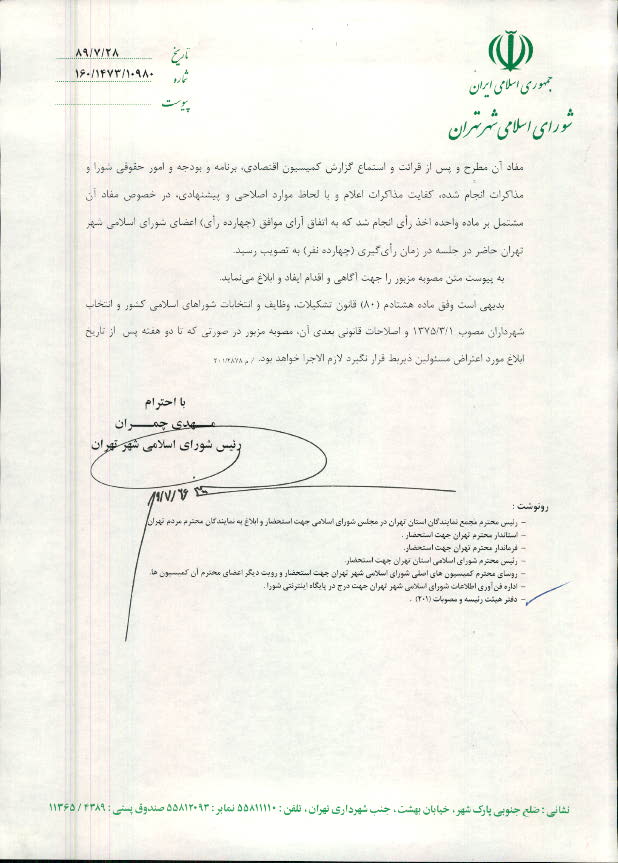 جمهوری اسلامی ایران
شورای اسلامی شهر تهران
تاریخ ۸۹/۷/۲۸
شماره ۱۶۰/۱۴۷۳/۱۰۹۸۰
پیوست
مفاد آن مطرح و پس از قرائت و استماع گزارش کمیسیون اقتصادی، برنامه و بودجه و امور حقوقی شورا و
مذاکرات انجام شده، کفایت مذاکرات اعلام و با لحاظ موارد اصلاحی و پیشنهادی، در خصوص مفاد آن
مشتمل بر ماده واحده اخذ رأی انجام شد که به اتفاق آرای موافق (چهارده رأی) اعضای شورای اسلامی شهر
تهران حاضر در جلسه در زمان رأی‌گیری (چهارده نفر) به تصویب رسید.
به پیوست متن مصوبه مزبور را جهت آگاهی و اقدام ایفاد و ابلاغ می‌نماید.
بدیهی است وفق ماده هشتادم (۸۰) قانون تشکیلات، وظایف و انتخابات شوراهای اسلامی کشور و انتخاب
شهرداران مصوب ۱۳۷۵/۳/۱ و اصلاحات قانونی بعدی آن، مصوبه مزبور در صورتی که تا دو هفته پس از تاریخ
ابلاغ مورد اعتراض مسئولین ذیربط قرار نگیرد لازم الاجرا خواهد بود. / م ۲۰۱/۲۸۷۸
با احترام
مهدی چمران
رئیس شورای اسلامی شهر تهران
رونوشت :
– رئیس محترم مجمع نمایندگان استان تهران در مجلس شورای اسلامی جهت استحضار و ابلاغ به نمایندگان محترم مردم تهران
– استاندار محترم تهران جهت استحضار .
– فرماندار محترم تهران جهت استحضار.
– رئیس محترم شورای اسلامی استان تهران جهت استحضار.
– روسای محترم کمیسیون های اصلی شورای اسلامی شهر تهران جهت استحضار و رویت دیگر اعضای محترم آن کمیسیون ها.
– اداره فن‌آوری اطلاعات شورای اسلامی شهر تهران جهت درج در پایگاه اینترنتی شورا .
– دفتر هیئت رئیسه و مصوبات (۲۰۱) .
نشانی : ضلع جنوبی پارک شهر، خیابان بهشت، جنب شهرداری تهران ، تلفن : ۵۵۸۱۱۱۱۰ نمابر : ۵۵۸۱۲۰۹۳ صندوق پستی : ۴۳۸۹ / ۱۱۳۶۵